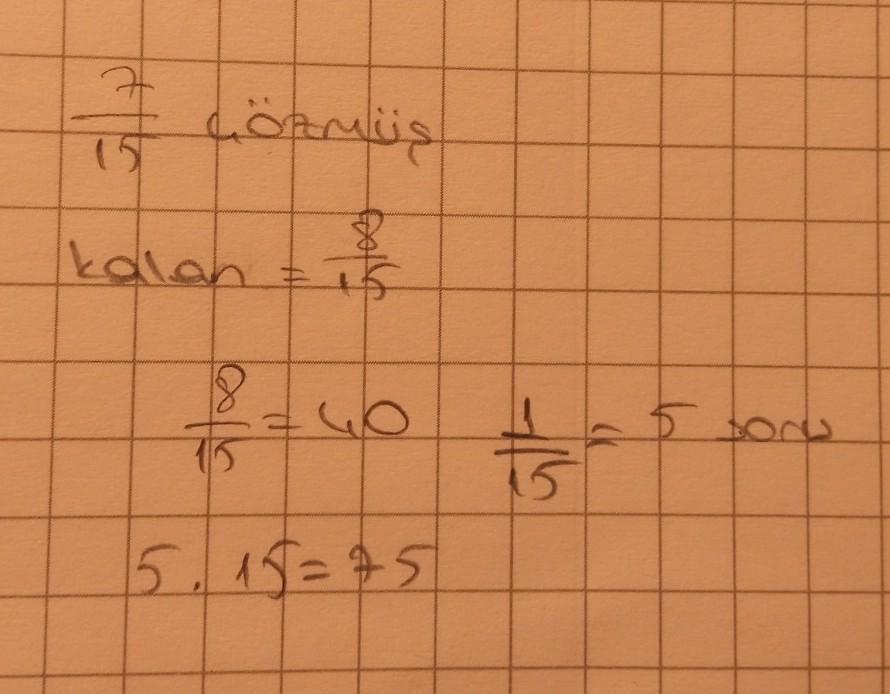 7/15 çözmüş
kalan = 8/15
8/15 = 40 1/15 = 5 soru
5 . 15 = 75